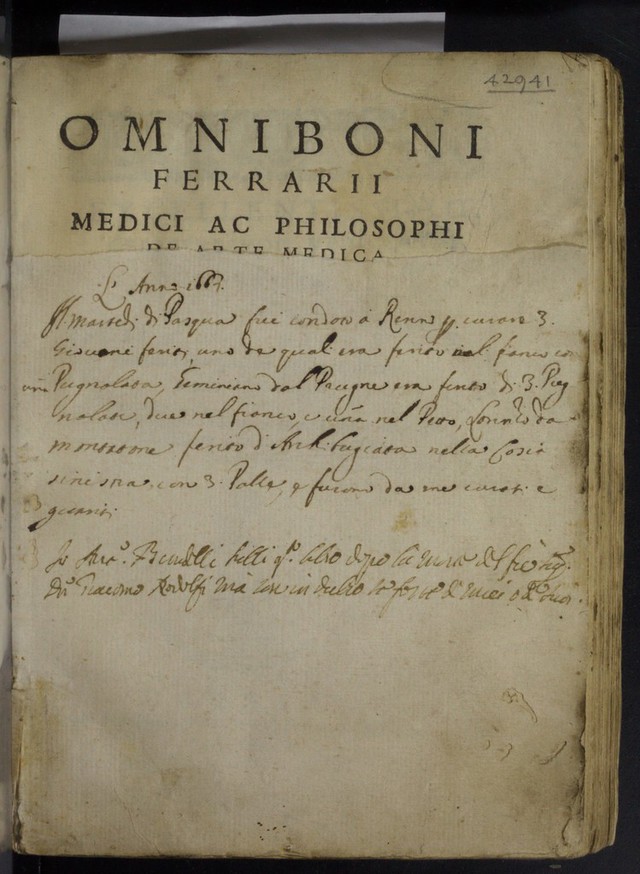 42941
OMNIBONI
FERRARII
MEDICI AC PHILOSOPHI
DE ARTE MEDICA
L'Anno 166
Il marted. di Pasqua fui condoto à Renno p. curare 3.
Giovani feriti, uno de quali era ferito nel fianco con
una Pugnalata, Geminiano dal Pacugne era ferito di 3. Pug
nalate, due nel fianco, e una nel Peto, Lorenzo da
montone ferito d'Archibugiata nella Cosia
sinistra con 3. Palle, e furono da me curati e
guariti.
Io libro dopo la morte del
Giacomo Ridolfi mà in